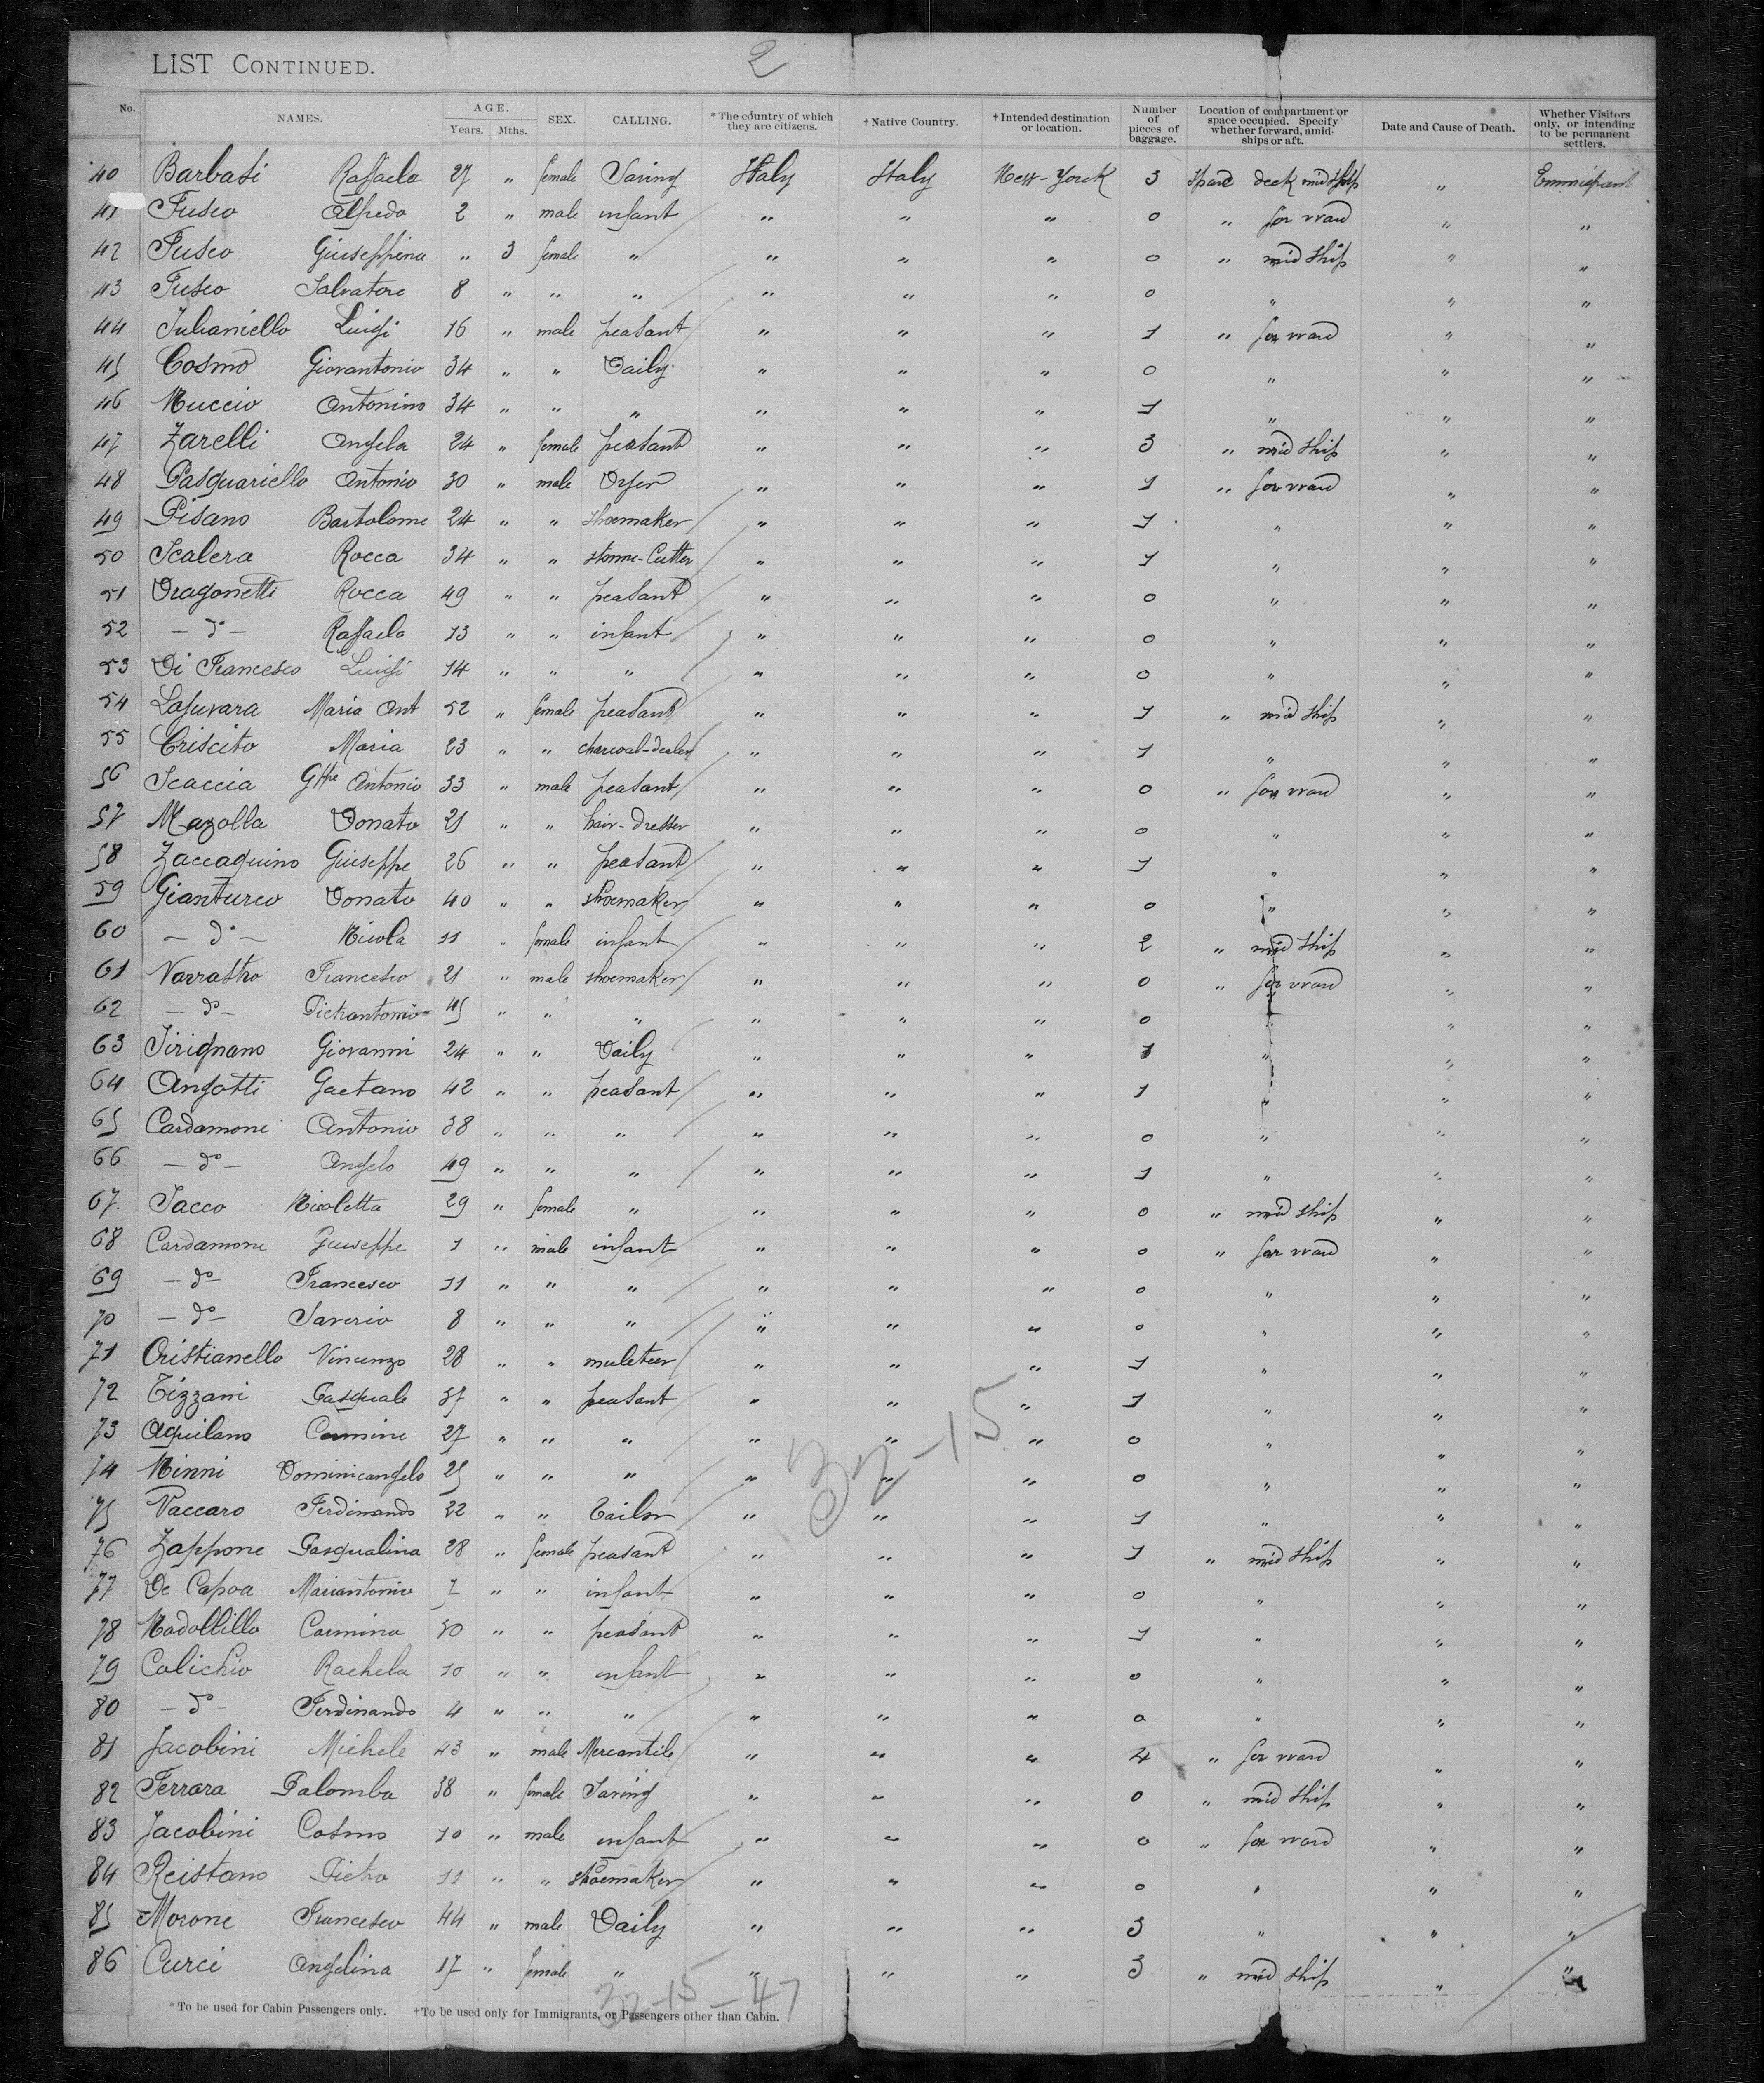 LIST CONTINUED.
2
No. NAMES. AGE. Years. Mths. SEX. CALLING. *The country of which they are citizens. †Native Country. †Intended destination or location. Number of pieces of baggage. Location of compartment or space occupied. Specify whether forward, amidships or aft. Date and Cause of Death. Whether Visitors only, or intending to be permanent settlers.
40 Barbasi Raffaela 27 " female Saving Italy Italy New-Yorck 3 Spare deck mid ship " Emmigrant
41 Fusco Alfredo 2 " male infant " " " 0 " for ward " "
42 Fusco Giuseppina " 3 female " " " " 0 " mid ship " "
43 Fusco Salvatore 8 " " " " " " 0 " " "
44 Iulianiello Luigi 16 " male peasant " " " 1 " for ward " "
45 Cosmo Giovantonio 34 " " Daily " " " 0 " " "
46 Nuccio Antonino 34 " " " " " " 1 " " "
47 Zarelli Angela 24 " female peasant " " " 3 " mid ship " "
48 Pasquariello Antonio 30 " male Dyer " " " 1 " for ward " "
49 Pisano Bartolome 24 " " shoemaker " " " 1 " " "
50 Scalera Rocca 34 " " stonne-Cutter " " " 1 " " "
51 Dragonetti Rocca 49 " " peasant " " " 0 " " "
52 - do - Raffaela 13 " " infant " " " 0 " " "
53 Di Francesco Luigi 14 " " " " " " 0 " " "
54 Maria Ant 52 " female peasant " " " 1 " mid ship " "
55 Criscito Maria 23 " " charcoal-dealer " " " 1 " " "
56 Scaccia Gppe Antonio 33 " male peasant " " " 0 " for ward " "
57 Mazolla Donato 21 " " hair-dresser " " " 0 " " "
58 Zaccaquino Giuseppe 26 " " peasant " " " 1 " " "
59 Gianturco Donato 40 " " shoemaker " " " 0 " " "
60 - do - Nicola 11 " female infant " " " 2 " mid ship " "
61 Francesco 21 " male shoemaker " " " 0 " for ward " "
62 - do - Pietrantonio 45 " " " " " " 0 " " "
63 Sirignano Giovanni 24 " " Daily " " " 1 " " "
64 Angotti Gaetano 42 " " peasant " " " 1 " " "
65 Cardamone Antonio 38 " " " " " " 0 " " "
66 - do - Angelo 49 " " " " " " 1 " " "
67 Sacco Nicoletta 29 " female " " " " 0 " mid ship " "
68 Cardamone Giuseppe 1 " male infant " " " 0 " for ward " "
69 - do - Francesco 11 " " " " " " 0 " " "
70 - do - Saverio 8 " " " " " " 0 " " "
71 Cristianello Vincenzo 28 " " muleteer " " " 1 " " "
72 Tizzani Pasquale 37 " " peasant " " " 1 " " "
73 Aquilano Carmine 27 " " " " " " 0 " " "
74 Ninni Dominicangelo 25 " " " " " " 0 " " "
75 Vaccaro Ferdinando 22 " " Tailor " " " 1 " " "
76 Zappone Pasqualina 28 " female peasant " " " 1 " mid ship " "
77 De Capoa Mariantonio " " infant " " " 0 " " "
78 Carmina 30 " " peasant " " " 1 " " "
79 Colichio Rachela 10 " " infant " " " 0 " " "
80 - do - Ferdinando 4 " " " " " " 0 " " "
81 Jacobini Michele 43 " male Mercantile " " " 4 " for ward " "
82 Ferrara Palomba 38 " female Saving " " " 0 " mid ship " "
83 Jacobini Cosmo 10 " male infant " " " 0 " for ward " "
84 Reistano Pietro 11 " " shoemaker " " " 0 " " "
85 Morone Francesco 44 " male Daily " " " 3 " " "
86 Curci Angelina 17 " female " " " " 3 " mid ship " "
32-15
32-15-47
*To be used for Cabin Passengers only. †To be used only for Immigrants, or Passengers other than Cabin.